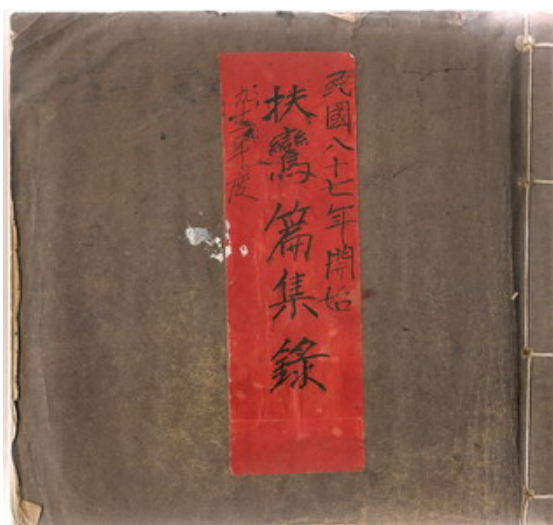 民國八十七年開始
扶鸞篇集錄
九十二年度